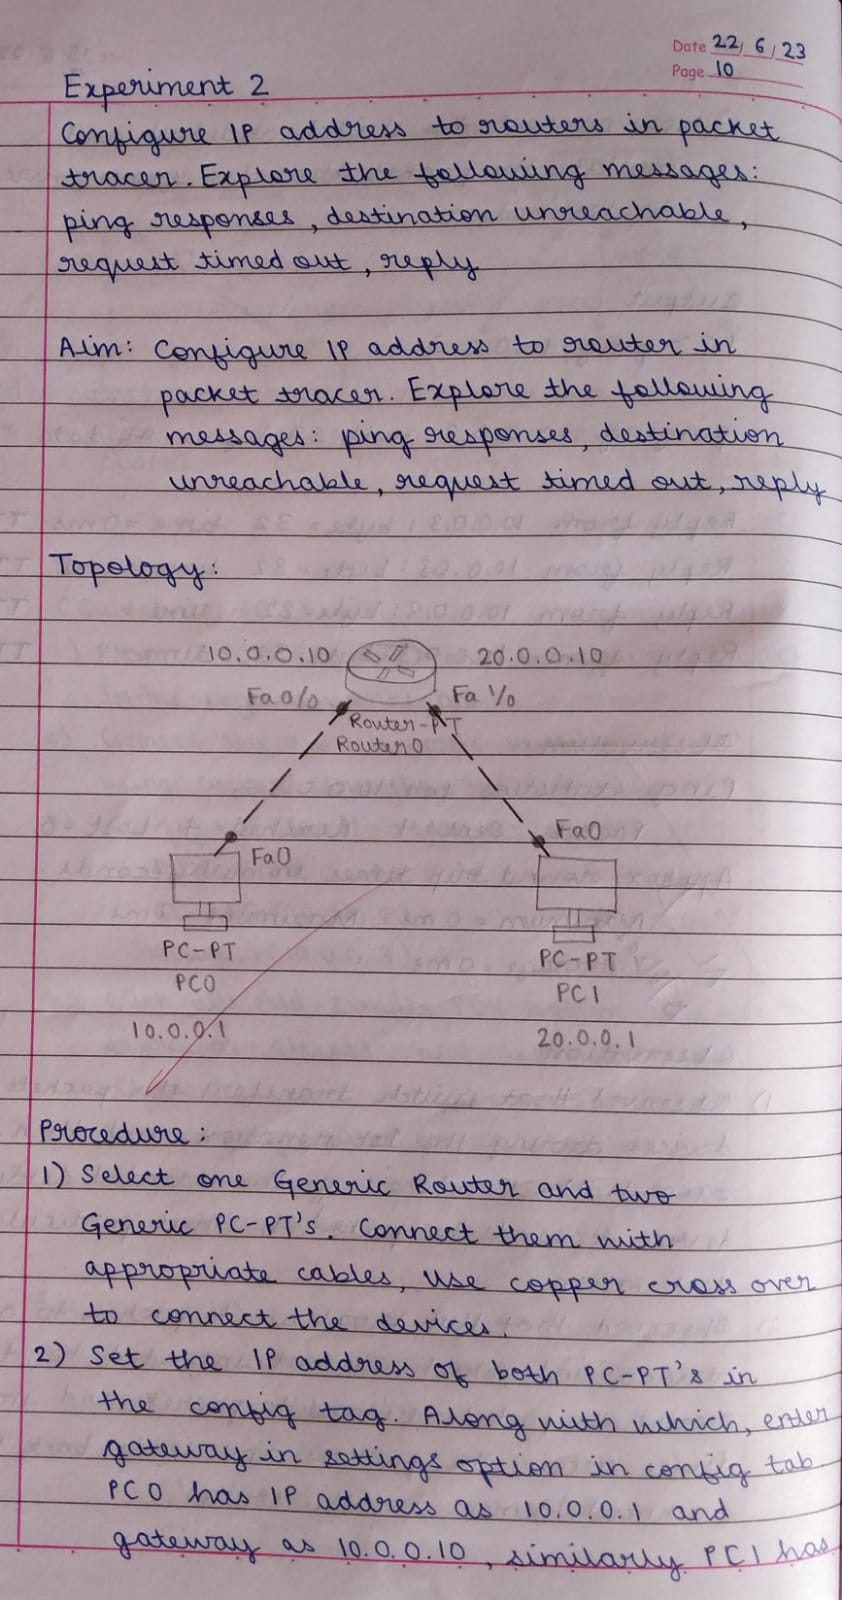 Date 22/ 6 / 23
Page 10
Experiment 2
Configure IP address to routers in packet
tracer. Explore the following messages:
ping responses, destination unreachable,
request timed out, reply
Aim: Configure IP address to router in
packet tracer. Explore the following
messages: ping responses, destination
unreachable, request timed out, reply
Topology:
10.0.0.10 20.0.0.10
Fa0/0 Fa 1/0
Router-PT
Router0
Fa0 Fa0
PC-PT PC-PT
PC0 PC1
10.0.0.1 20.0.0.1
Procedure:
1) Select one Generic Router and two
Generic PC-PT's. Connect them with
appropriate cables, use copper cross over
to connect the devices.
2) Set the IP address of both PC-PT's in
the config tag. Along with which, enter
gateway in settings option in config tab.
PC0 has IP address as 10.0.0.1 and
gateway as 10.0.0.10, similarly PC1 has